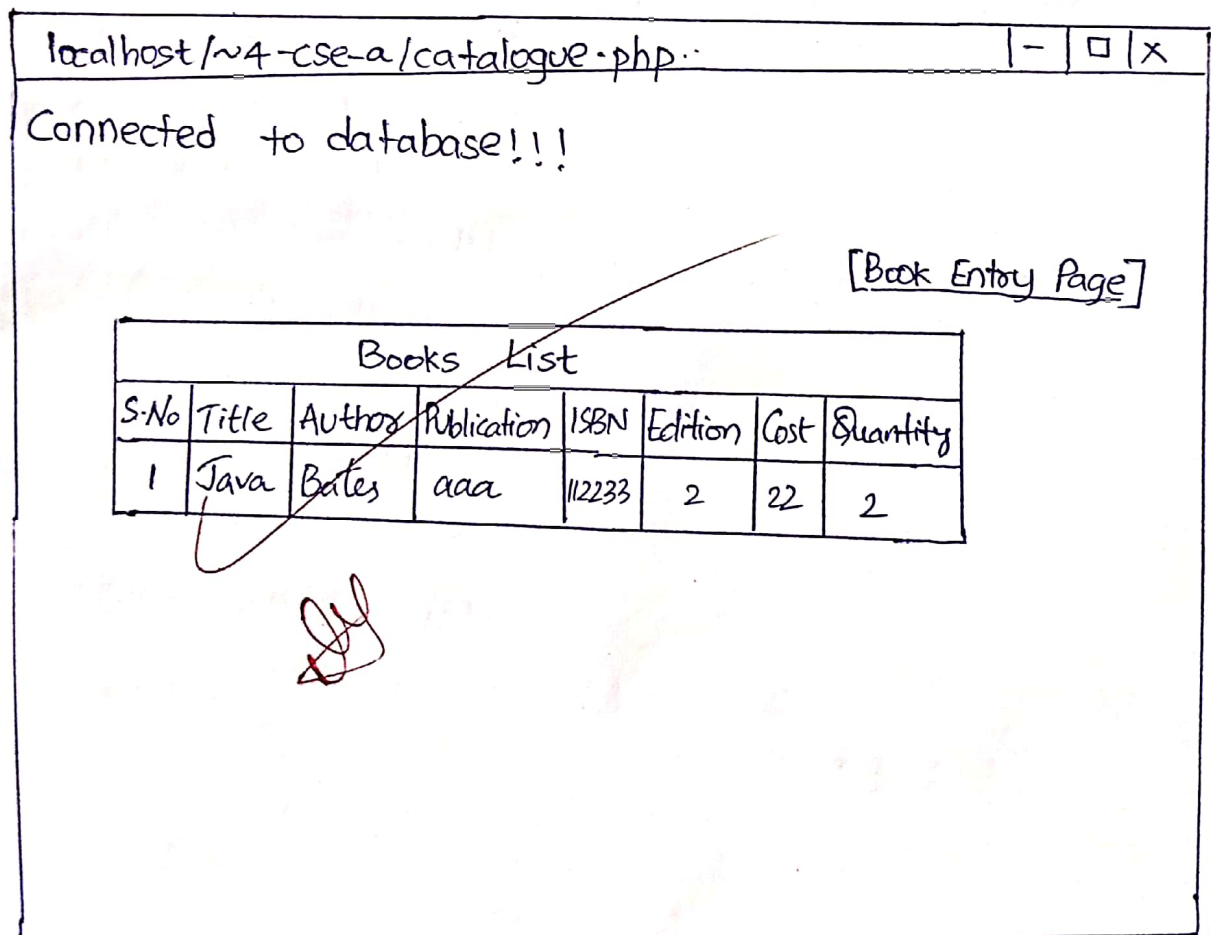 localhost/~4-cse-a/catalogue.php..
Connected to database!!!
[Book Entry Page]
Books List
S.No Title Author Publication ISBN Edition Cost Quantity
1 Java Bates aaa 112233 2 22 2